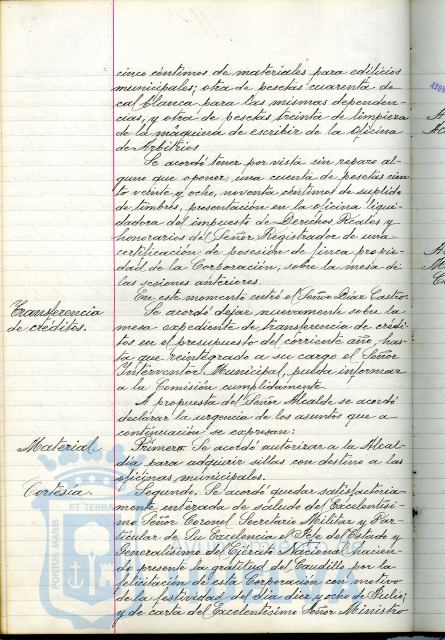 cinco céntimos de materiales para edificios
municipales; otra de pesetas cuarenta de
cal blanca para las mismas dependen-
cias, y otra de pesetas treinta de limpieza
de la máquina de escribir de la oficina
de Arbitrios
Se acordó tener por vista sin reparo al-
guno que oponer, una cuenta de pesetas cien
to veinte y ocho, noventa céntimos de suplido
de timbres, presentación en la oficina liqui-
dadora del impuesto de Derechos Reales y
honorarios del Señor Registrador de una
certificación de posesión de finca propie-
dad de la Corporación, sobre la mesa de
las sesiones anteriores.
En este momento entró el Señor Díaz Castro.
Transferencia
de créditos.
Se acordó dejar nuevamente sobre la
mesa expediente de transferencia de crédi-
tos en el presupuesto del corriente año, has-
ta que reintegrado a su cargo el Señor
Interventor Municipal, pueda informar
a la Comisión cumplidamente.
A propuesta del Señor Alcalde se acordó
declarar la urgencia de los asuntos que a
continuación se expresan:
Material.
Primero. Se acordó autorizar a la Alcal-
día para adquirir sillas con destino a las
oficinas municipales.
Cortesía.
Segundo. Se acordó quedar satisfactoria-
mente enterada de saludo del Excelentísi-
mo Señor Coronel Secretario Militar y Par-
ticular de Su Excelencia el Jefe del Estado y
Generalísimo del Ejército Nacional hacien-
do presente la gratitud del Caudillo por la
felicitación de esta Corporación con motivo
de la festividad del día diez y ocho de Julio;
y de carta del Excelentísimo Señor Ministro
ET TERRA
PORTUS MARIS